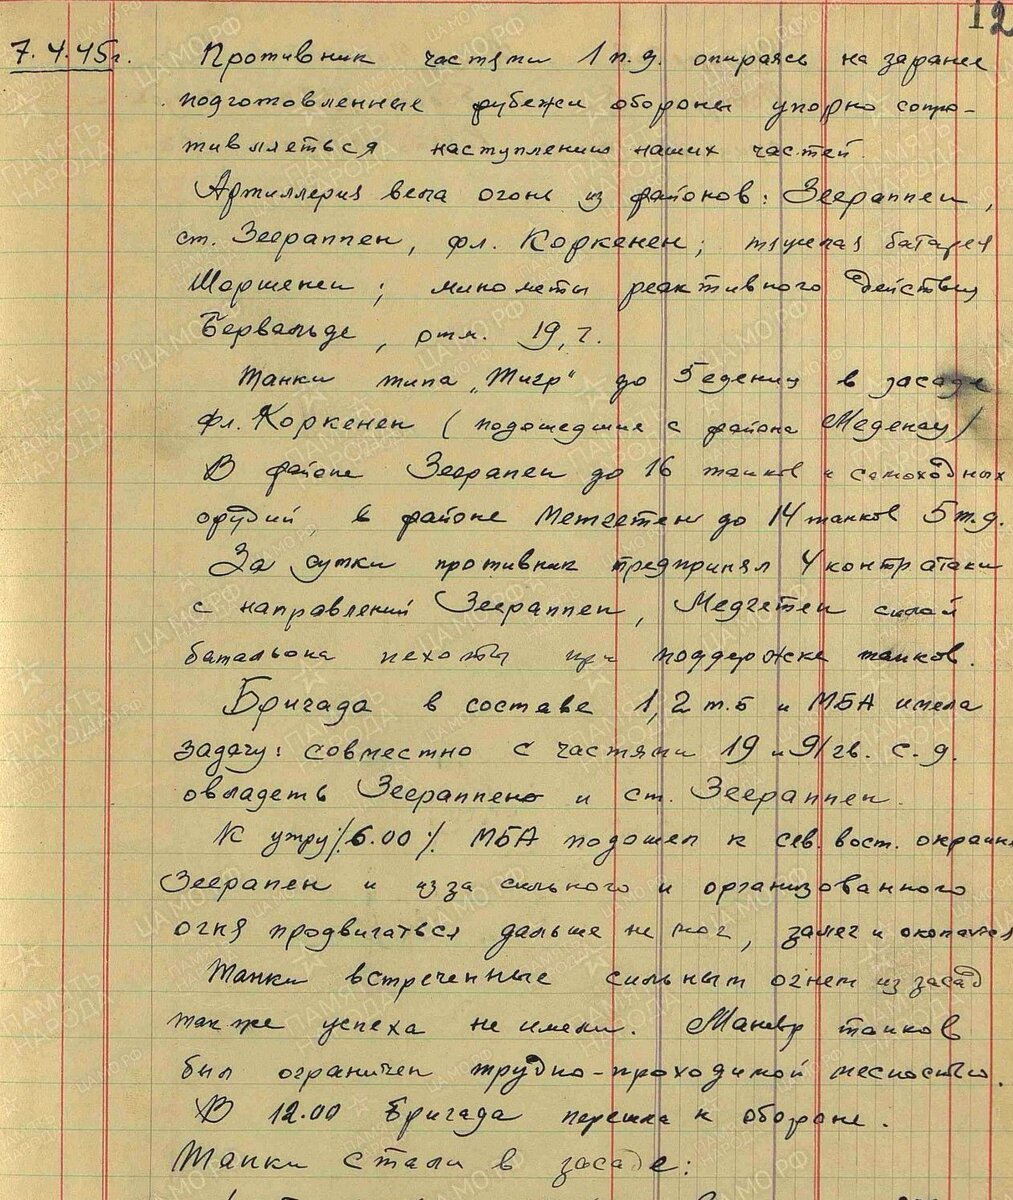 12
7.4.45г. Противник частями 1 п.д. опираясь на заранее
подготовленные рубежи обороны упорно сопро-
тивляеться наступлению наших частей.
Артиллерия вела огонь из районов: Зеераппен,
ст. Зеераппен, фл. Коркенен; тяжелая батарея
Шоршенен; минометы реактивного действия
Бервальде, отм. 19,7.
Танки типа „Тигр" до 5 едениц в засаде
фл. Коркенен (подошедшие с района Меденау)
В районе Зеерапен до 16 танков и самоходных
орудий, в районе Метгетен до 14 танков 5 т.д.
За сутки противник предпринял 4 контратаки
с направлений Зеераппен, Медгетен силой
батальона пехоты при поддержке танков.
Бригада в составе 1,2 т.б и МБА имела
задачу: совместно с частями 19 и 91 гв. с.д.
овладеть Зеераппен и ст. Зеераппен.
К утру /6.00/. МБА подошел к сев. вост. окраине
Зеерапен и из за сильного и организованного
огня продвигаться дальше не мог, залег и окопался
Танки встреченные сильным огнем из засад
так же успеха не имели. Маневр танков
был ограничен трудно-проходимой месностью.
В 12.00 Бригада перешла к обороне.
Танки стали в засаде: